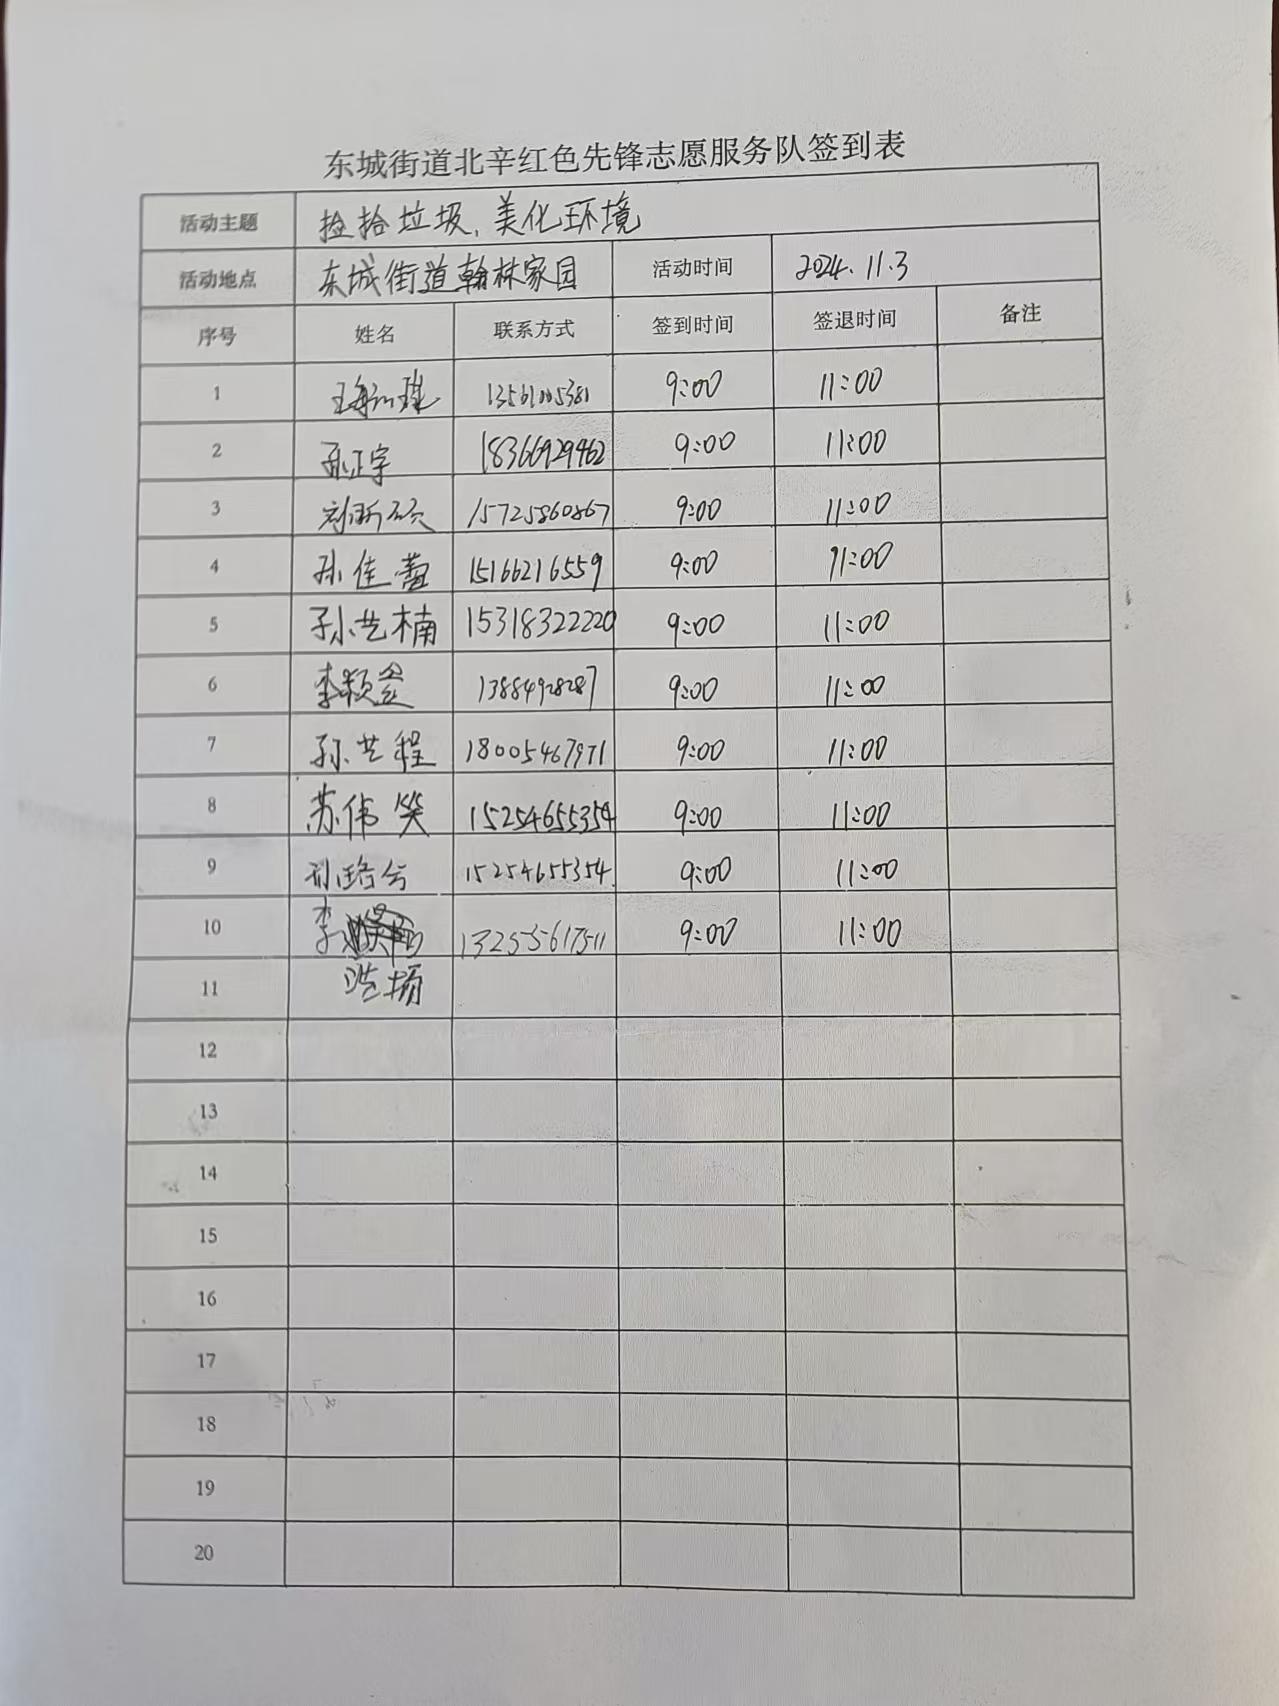 东城街道北辛红色先锋志愿服务队签到表
活动主题 捡拾垃圾、美化环境
活动地点 东城街道翰林家园 活动时间 2024.11.3
序号 姓名 联系方式 签到时间 签退时间 备注
1 9:00 11:00
2 孙正宇 18366929462 9:00 11:00
3 15725860867 9:00 11:00
4 孙佳 15166216559 9:00 11:00
5 孙艺楠 15318322220 9:00 11:00
6 李颖 13884928287 9:00 11:00
7 孙艺程 18005467971 9:00 11:00
8 苏伟笑 15254655354 9:00 11:00
9 15254655354 9:00 11:00
10 李 13255617511 9:00 11:00
11 浩扬
12
13
14
15
16
17
18
19
20